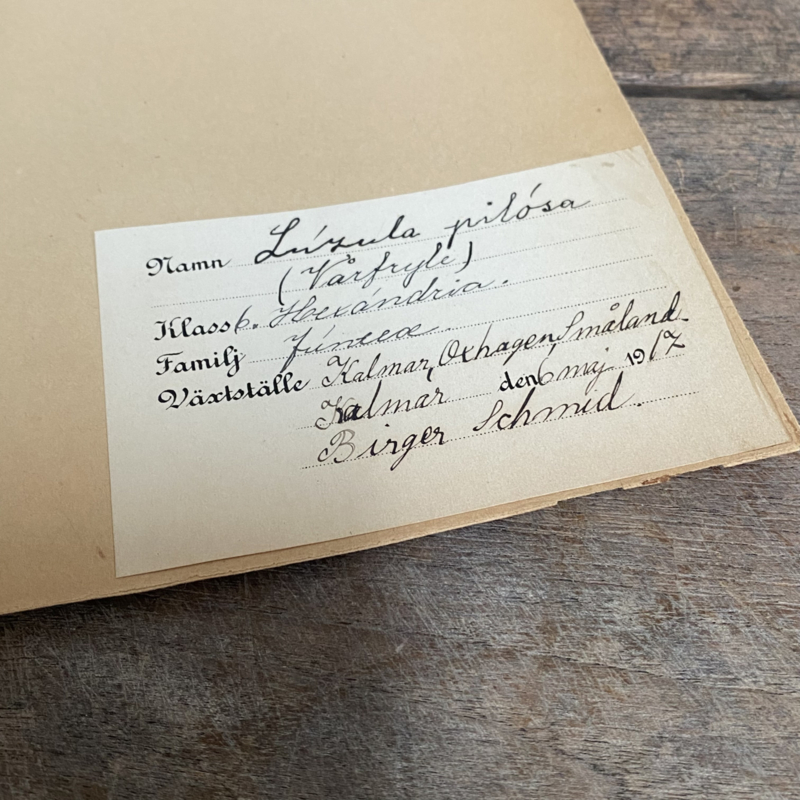 Namn Lúzula pilósa
(Vårfryle)
Klass 6. Hexándria.
Familj Júnceæ.
Växtställe Kalmar, Oxhagen, Småland.
Kalmar den 6 maj 1917
Birger Schmid.